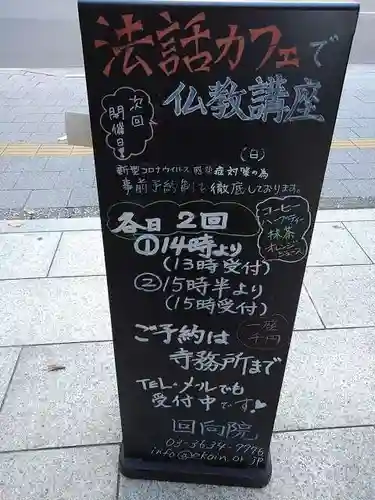 法話カフェで
仏教講座
次回
開催日
(日)
新型コロナウイルス感染症対策の為
事前予約制で徹底しております。
各日2回
①14時より
(13時受付)
②15時半より
(15時受付)
コーヒー
ハーブティー
抹茶
オレンジ
ジュース
ご予約は
一座
千円
寺務所まで
TEL・メールでも
受付中です♡
回向院
03-3634-7776
info@ekoin.or.jp